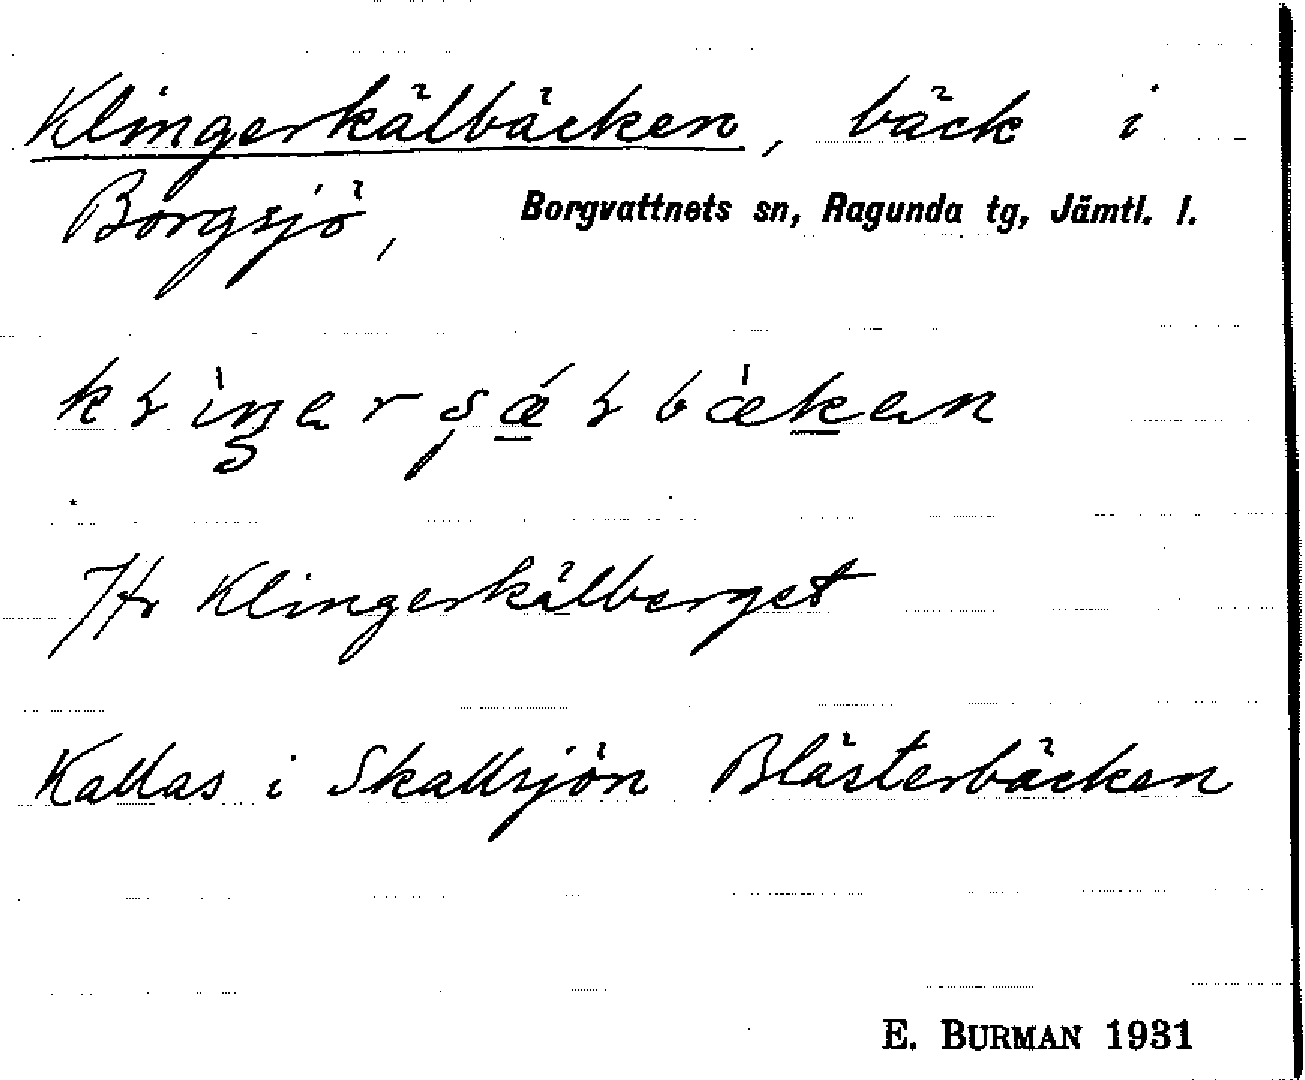 Klingerkälbäcken, bäck i
Borgsjö, Borgvattnets sn, Ragunda tg, Jämtl. l.
Jfr Klingerkälberget
Kallas i Skallsjön Blästerbäcken
E. BURMAN 1931